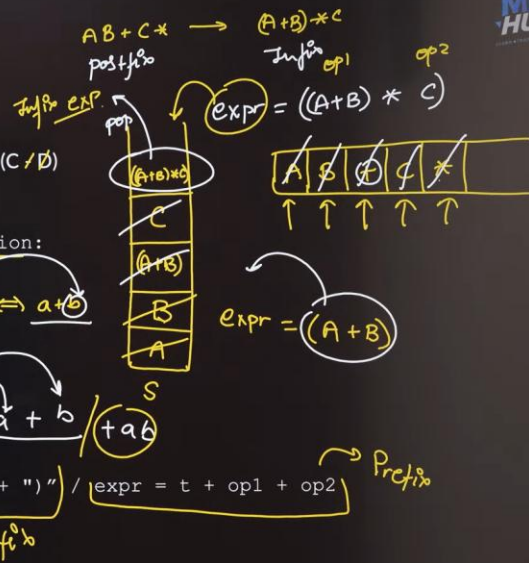 AB+C* → (A+B)*C
postfix Infix
op1 op2
Infix exp.
pop
expr = ((A+B) * C)
(C / D)
((A+B)*C)
A B + C *
C
ion:
(A+B)
⇔ a+b
B
expr = (A+B)
A
S
a + b / +ab
+ ")") / expr = t + op1 + op2
Prefix
fix
HU